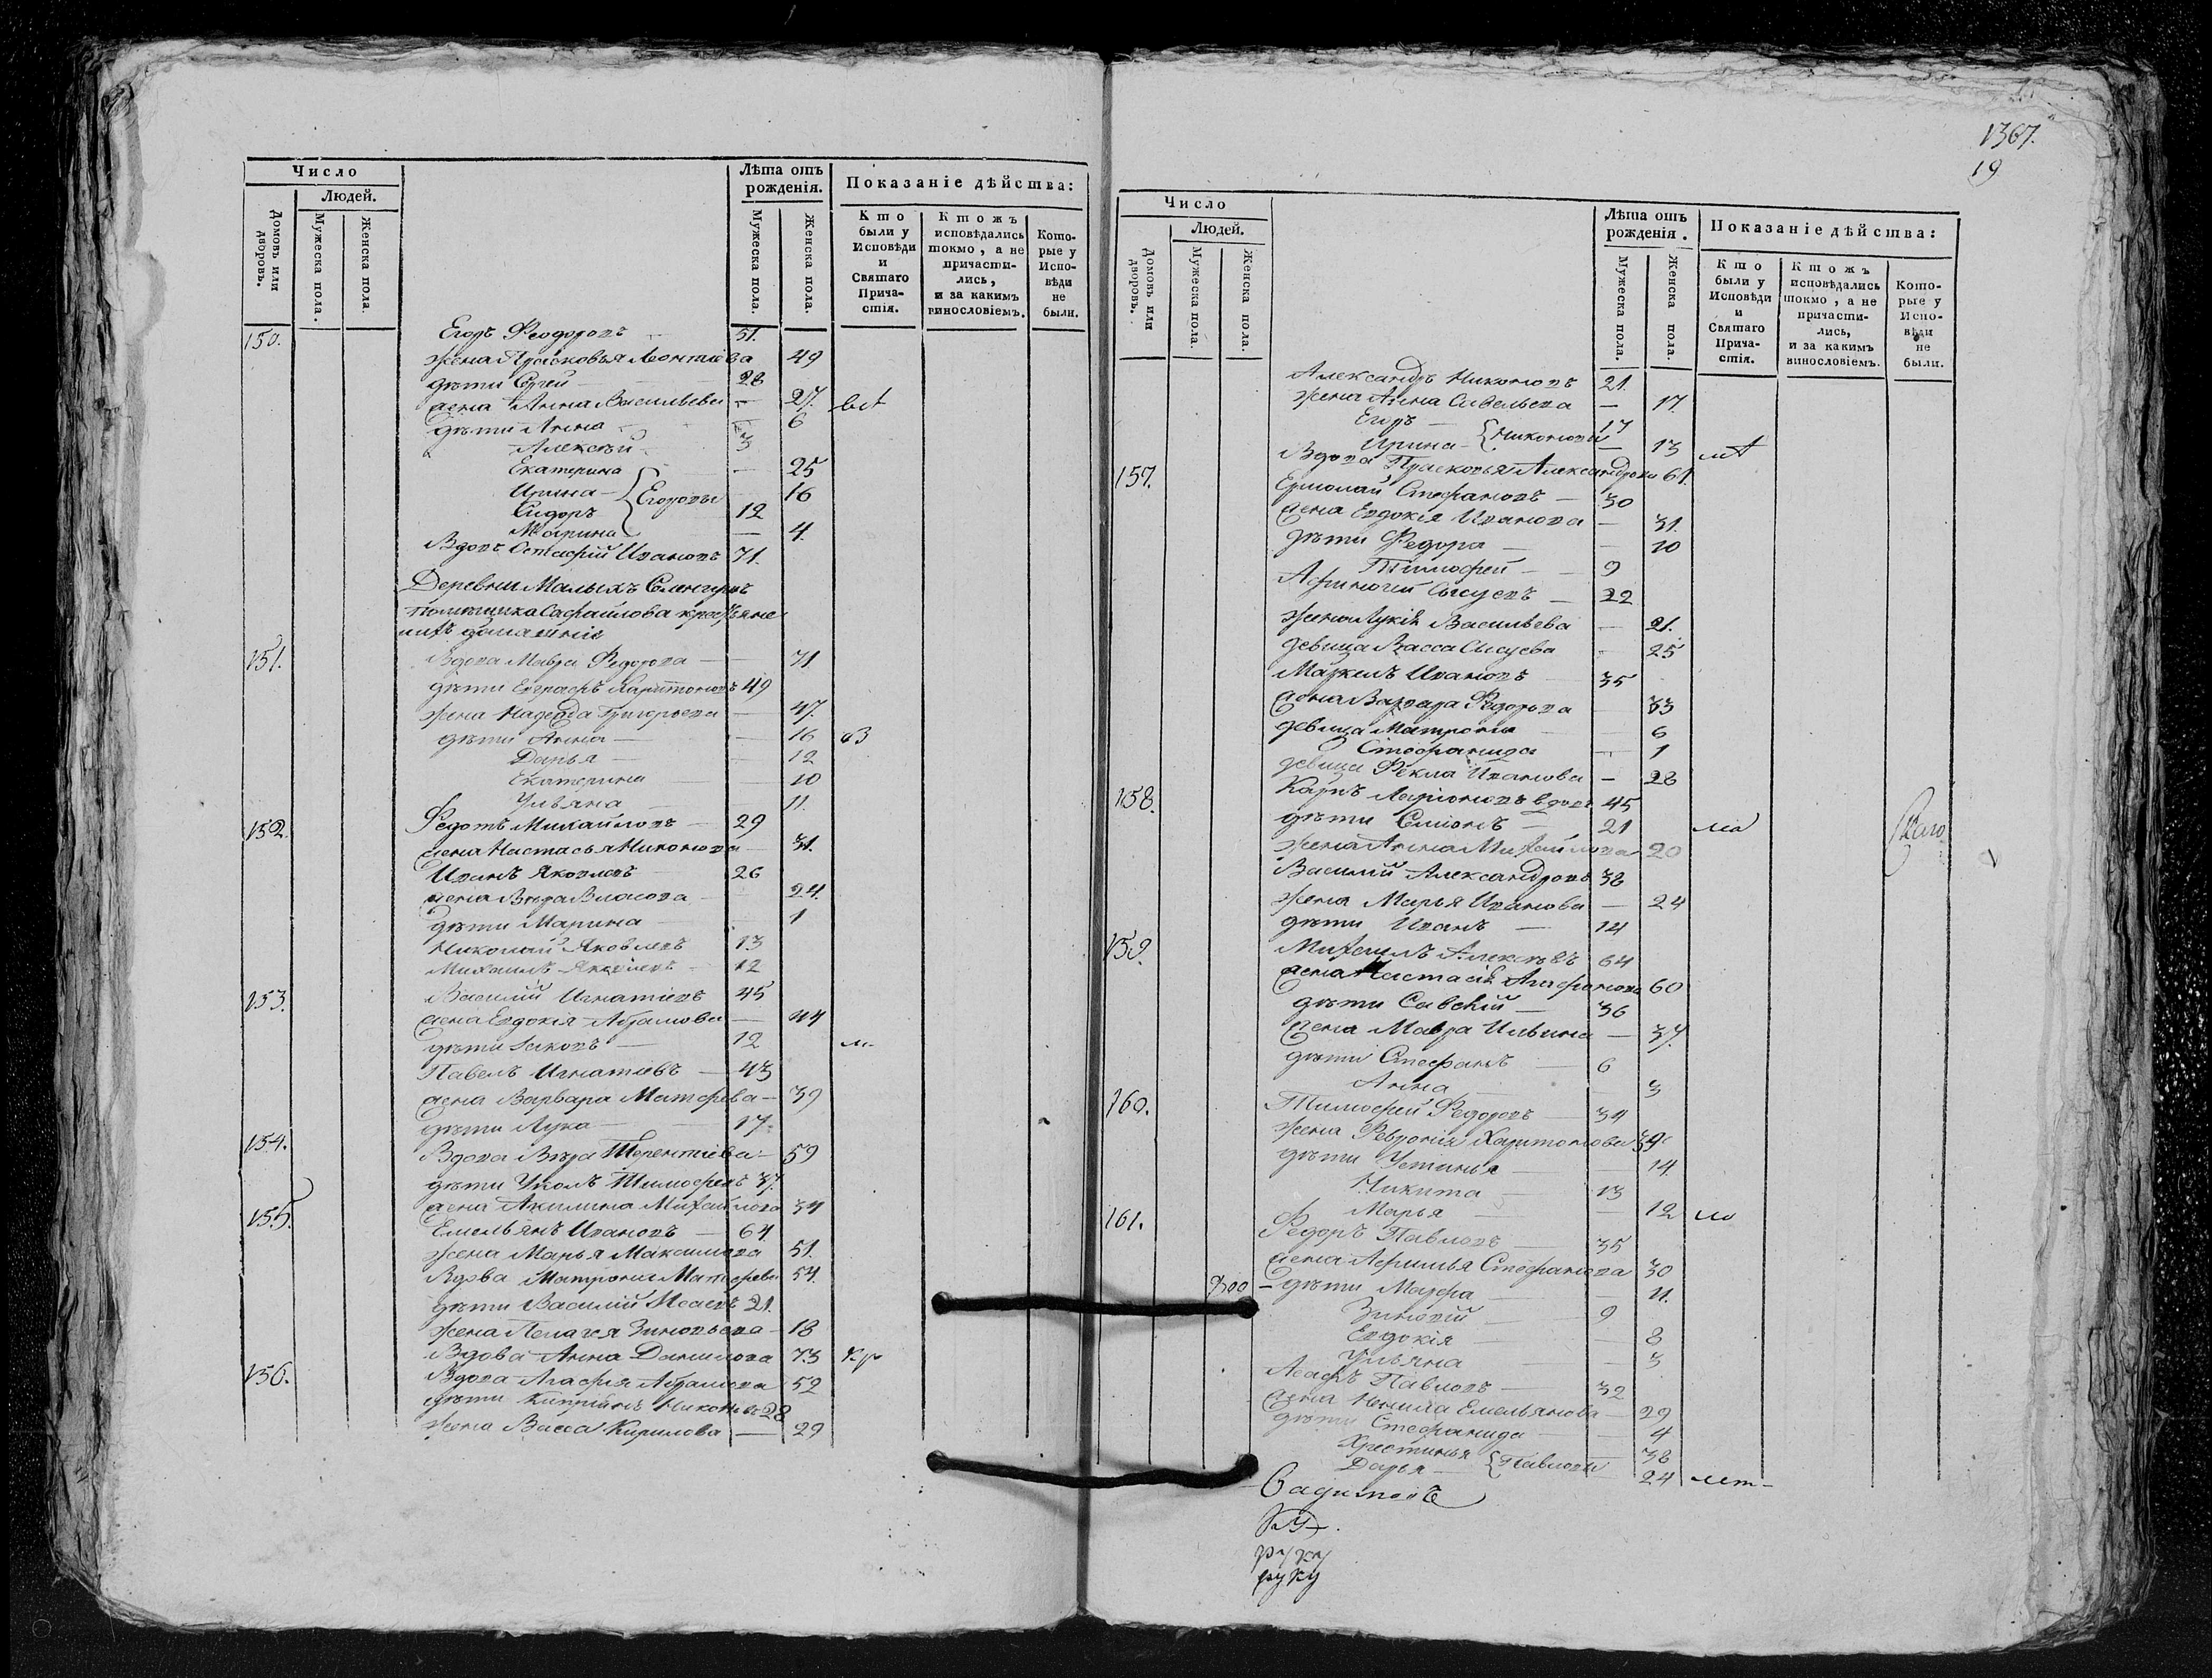 Число
Людей.
Домовъ или дворовъ.
Мужеска пола.
Женска пола.
Лѣта отъ рожденія.
Мужеска пола.
Женска пола.
Показаніе дѣйства:
Кто были у Исповѣди и Святаго Причастія.
Ктожъ исповѣдались токмо, а не причастились, и за какимъ винословіемъ.
Которые у Исповѣди не были.
150. Егоръ Феодоровъ 51.
жена Прасковья Леонтіева 49
дѣти Сергей 28
жена Анна Васильева — 27.
дѣти Анна 6
Алексѣй 3
Екатерина — 25
Ирина Егоровы 16
Сидоръ 12
Марина — 4
Вдовъ Остафій Ивановъ 71.
Деревни Малыхъ
помѣщика крестьяне
ихъ домашніе
151. Вдова Мавра Федорова — 71
дѣти Евграфъ Харитоновъ 49
жена Надежда Григорьева — 47.
дѣти Анна — 16
Дарья — 12
Екатерина — 10
Ульяна — 11.
152. Федотъ Михайловъ — 29
жена Настасья Никонова — 31.
Иванъ Яковлевъ — 26
жена Вѣра Власова — 24.
дѣти Марина — 1
Николай Яковлевъ 13
Михаилъ Яковлевъ 12
153. Василій Игнатіевъ 45
жена Евдокія Абрамова — 44
дѣти Іаковъ — 12
Павелъ Игнатіевъ — 43
жена Варвара Матфева — 39
дѣти Лука — 17.
154. Вдова Вѣра Терентіева — 59
дѣти Тимофевъ 37.
жена Акилина Михайлова 34
155. Емельянъ Ивановъ — 64
жена Марья Максимова 51.
Вдова Матрона Матфева 54.
дѣти Василій 21.
жена Пелагея Зиновьева — 18
Вдова Анна Данилова 73
156. Вдова Агафья Абрамова 52
дѣти Кипріянъ 28
жена Васса Кирилова — 29
1367.
19
Число
Людей.
Домовъ или дворовъ.
Мужеска пола.
Женска пола.
Лѣта отъ рожденія.
Мужеска пола.
Женска пола.
Показаніе дѣйства:
Кто были у Исповѣди и Святаго Причастія.
Ктожъ исповѣдались токмо, а не причастились, и за какимъ винословіемъ.
Которые у Исповѣди не были.
Александръ Никоновъ 21.
жена Анна Савельева — 17.
Егоръ — Никоновы 17
Ирина — 13
Вдова Прасковья Александрова 61.
157. Ермолай Стефановъ — 30
жена Евдокія Иванова — 31.
дѣти Федора — 10
Тимофей — 9
Афиногей Сысуевъ — 22
жена Лукія Васильева — 21.
девица Васса Сысуева 25
Маркелъ Ивановъ 35
жена Варвара Федорова 33
девица Матрона 6
Стефанида — 1
девица Фекла Иванова — 28
158 Карпъ Ларіоновъ вдовъ 45
дѣти Симіонъ — 21
жена Анна Михайлова 20
Василій Александровъ 38
жена Марья Иванова — 24
дѣти Иванъ — 14
159. Михаилъ Алексѣевъ 64
жена Настасія 60
дѣти 36
жена Мавра Ильина — 37.
дѣти Стефанъ — 6
Анна — 3
160. Тимофей Федоровъ — 34
жена Феврония Харитонова
дѣти Устинья — 14
Никита — 13
Марья — 12
161. Федоръ Павловъ — 35
жена Афимья Стефанова 30
дѣти Марфа — 11.
Зиновій — 9
Евдокія — 8
Ульяна — 3
Павловъ — 32
жена Ненила Емельянова — 29
дѣти Стефанида — 4
Христинья Павловы 38
Дарья — 24
руку
руку